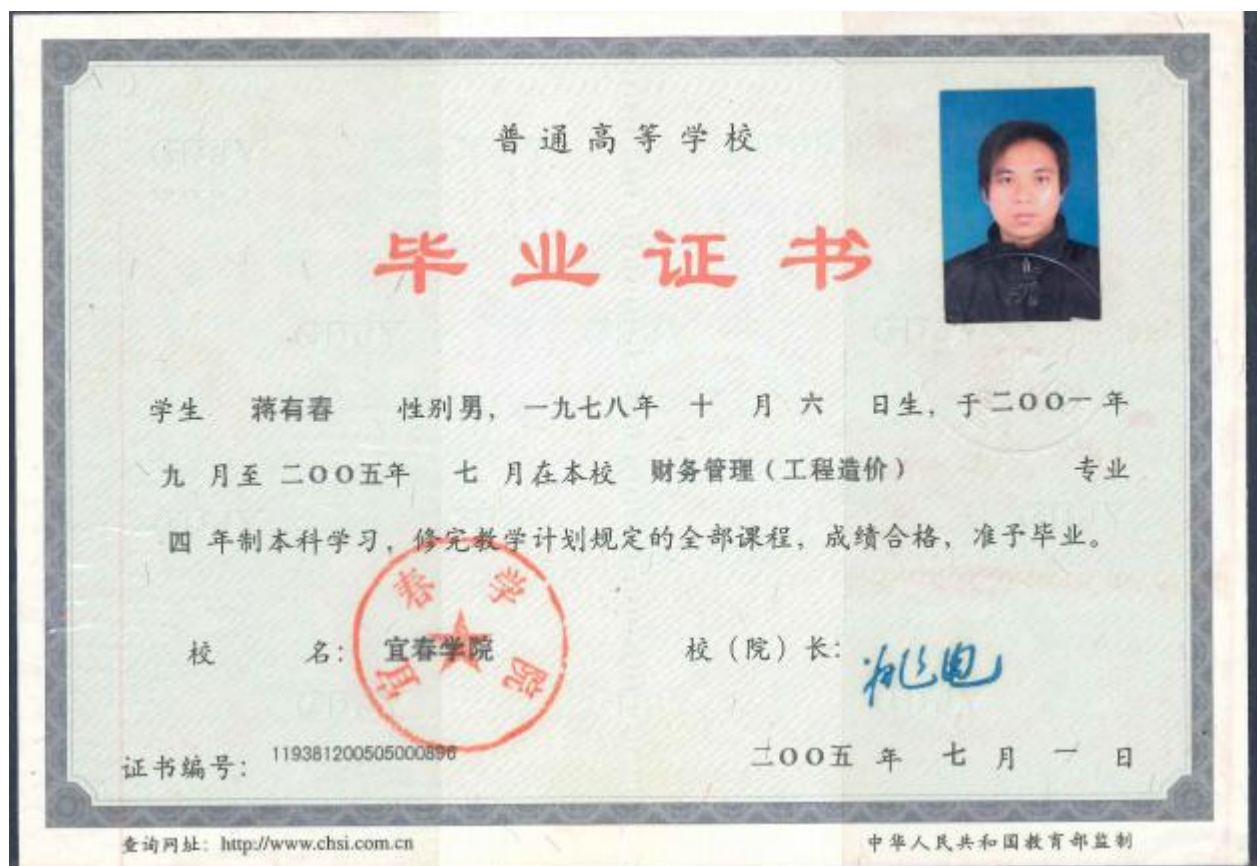 普通高等学校
毕业证书
学生 蒋有春 性别男，一九七八年 十 月 六 日生，于二〇〇一年
九 月至 二〇〇五年 七 月在本校 财务管理（工程造价） 专业
四 年制本科学习，修完教学计划规定的全部课程，成绩合格，准予毕业。
校 名： 宜春学院 校（院）长：
宜春学院
证书编号： 119381200505000896 二〇〇五 年 七 月 一 日
查询网址：http://www.chsi.com.cn 中华人民共和国教育部监制